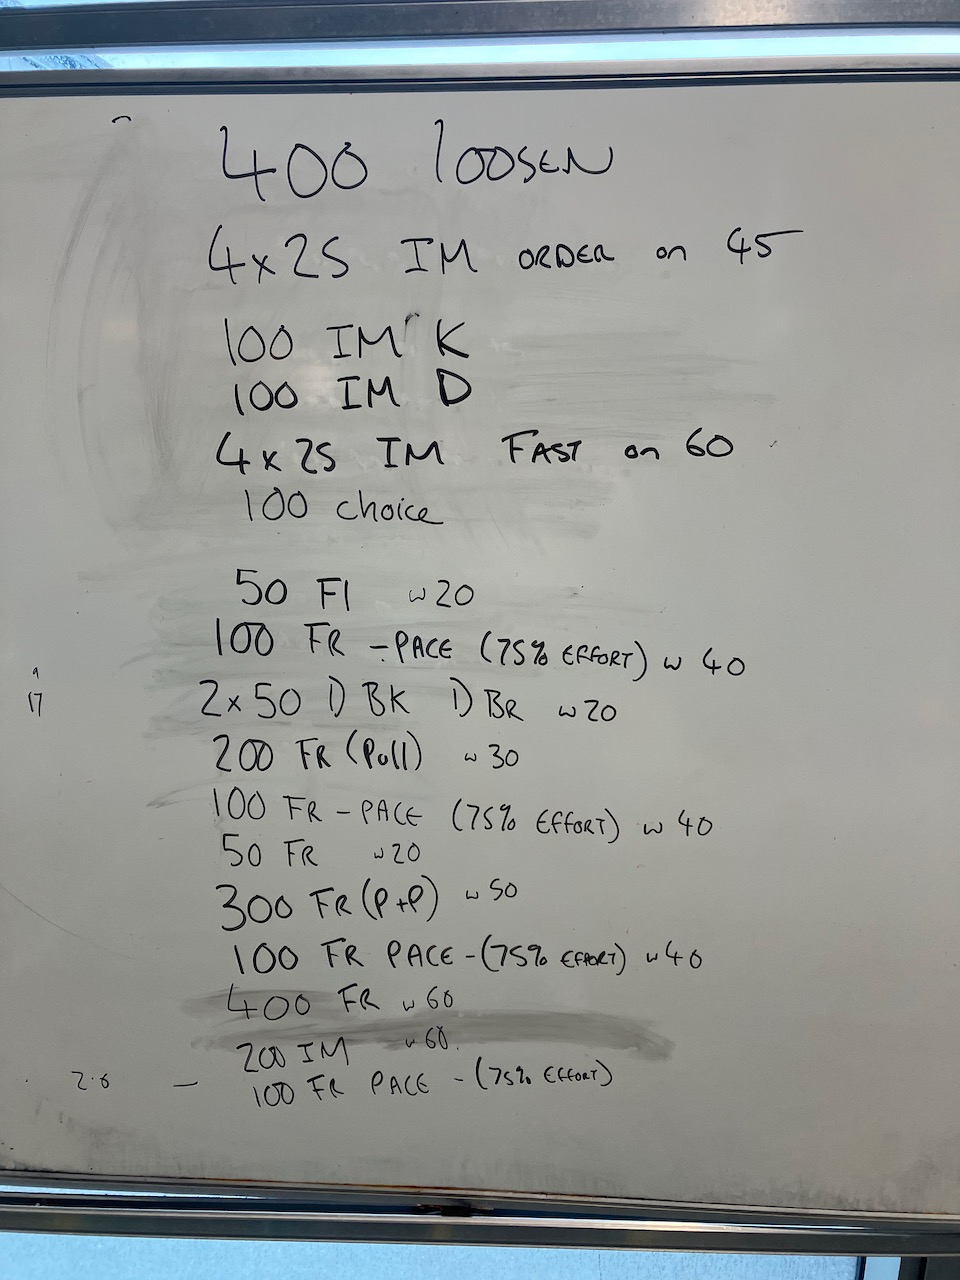 400 LOOSEN
4x25 IM ORDER on 45
100 IM K
100 IM D
4x25 IM FAST on 60
100 choice
50 Fl w20
100 FR - PACE (75% EFFORT) w 40
17
2x50 1) BK 1) BR w20
200 FR (Pull) w 30
100 FR - PACE (75% EFFORT) w 40
50 FR w20
300 FR (P+P) w 50
100 FR PACE - (75% EFFORT) w40
400 FR w 60
200 IM w 60.
2.6 — 100 FR PACE - (75% EFFORT)